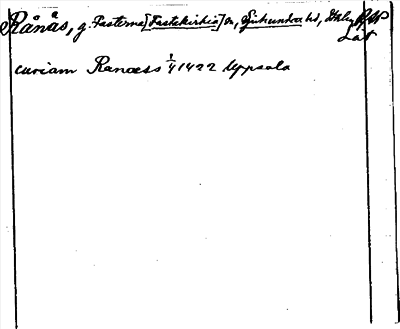 Rånås, g. Fasterna [Fastekirkia] sn, Sjuhundra hd, Sthlm RAP
Lat
curiam Ranæss 1/4 1422 Uppsala